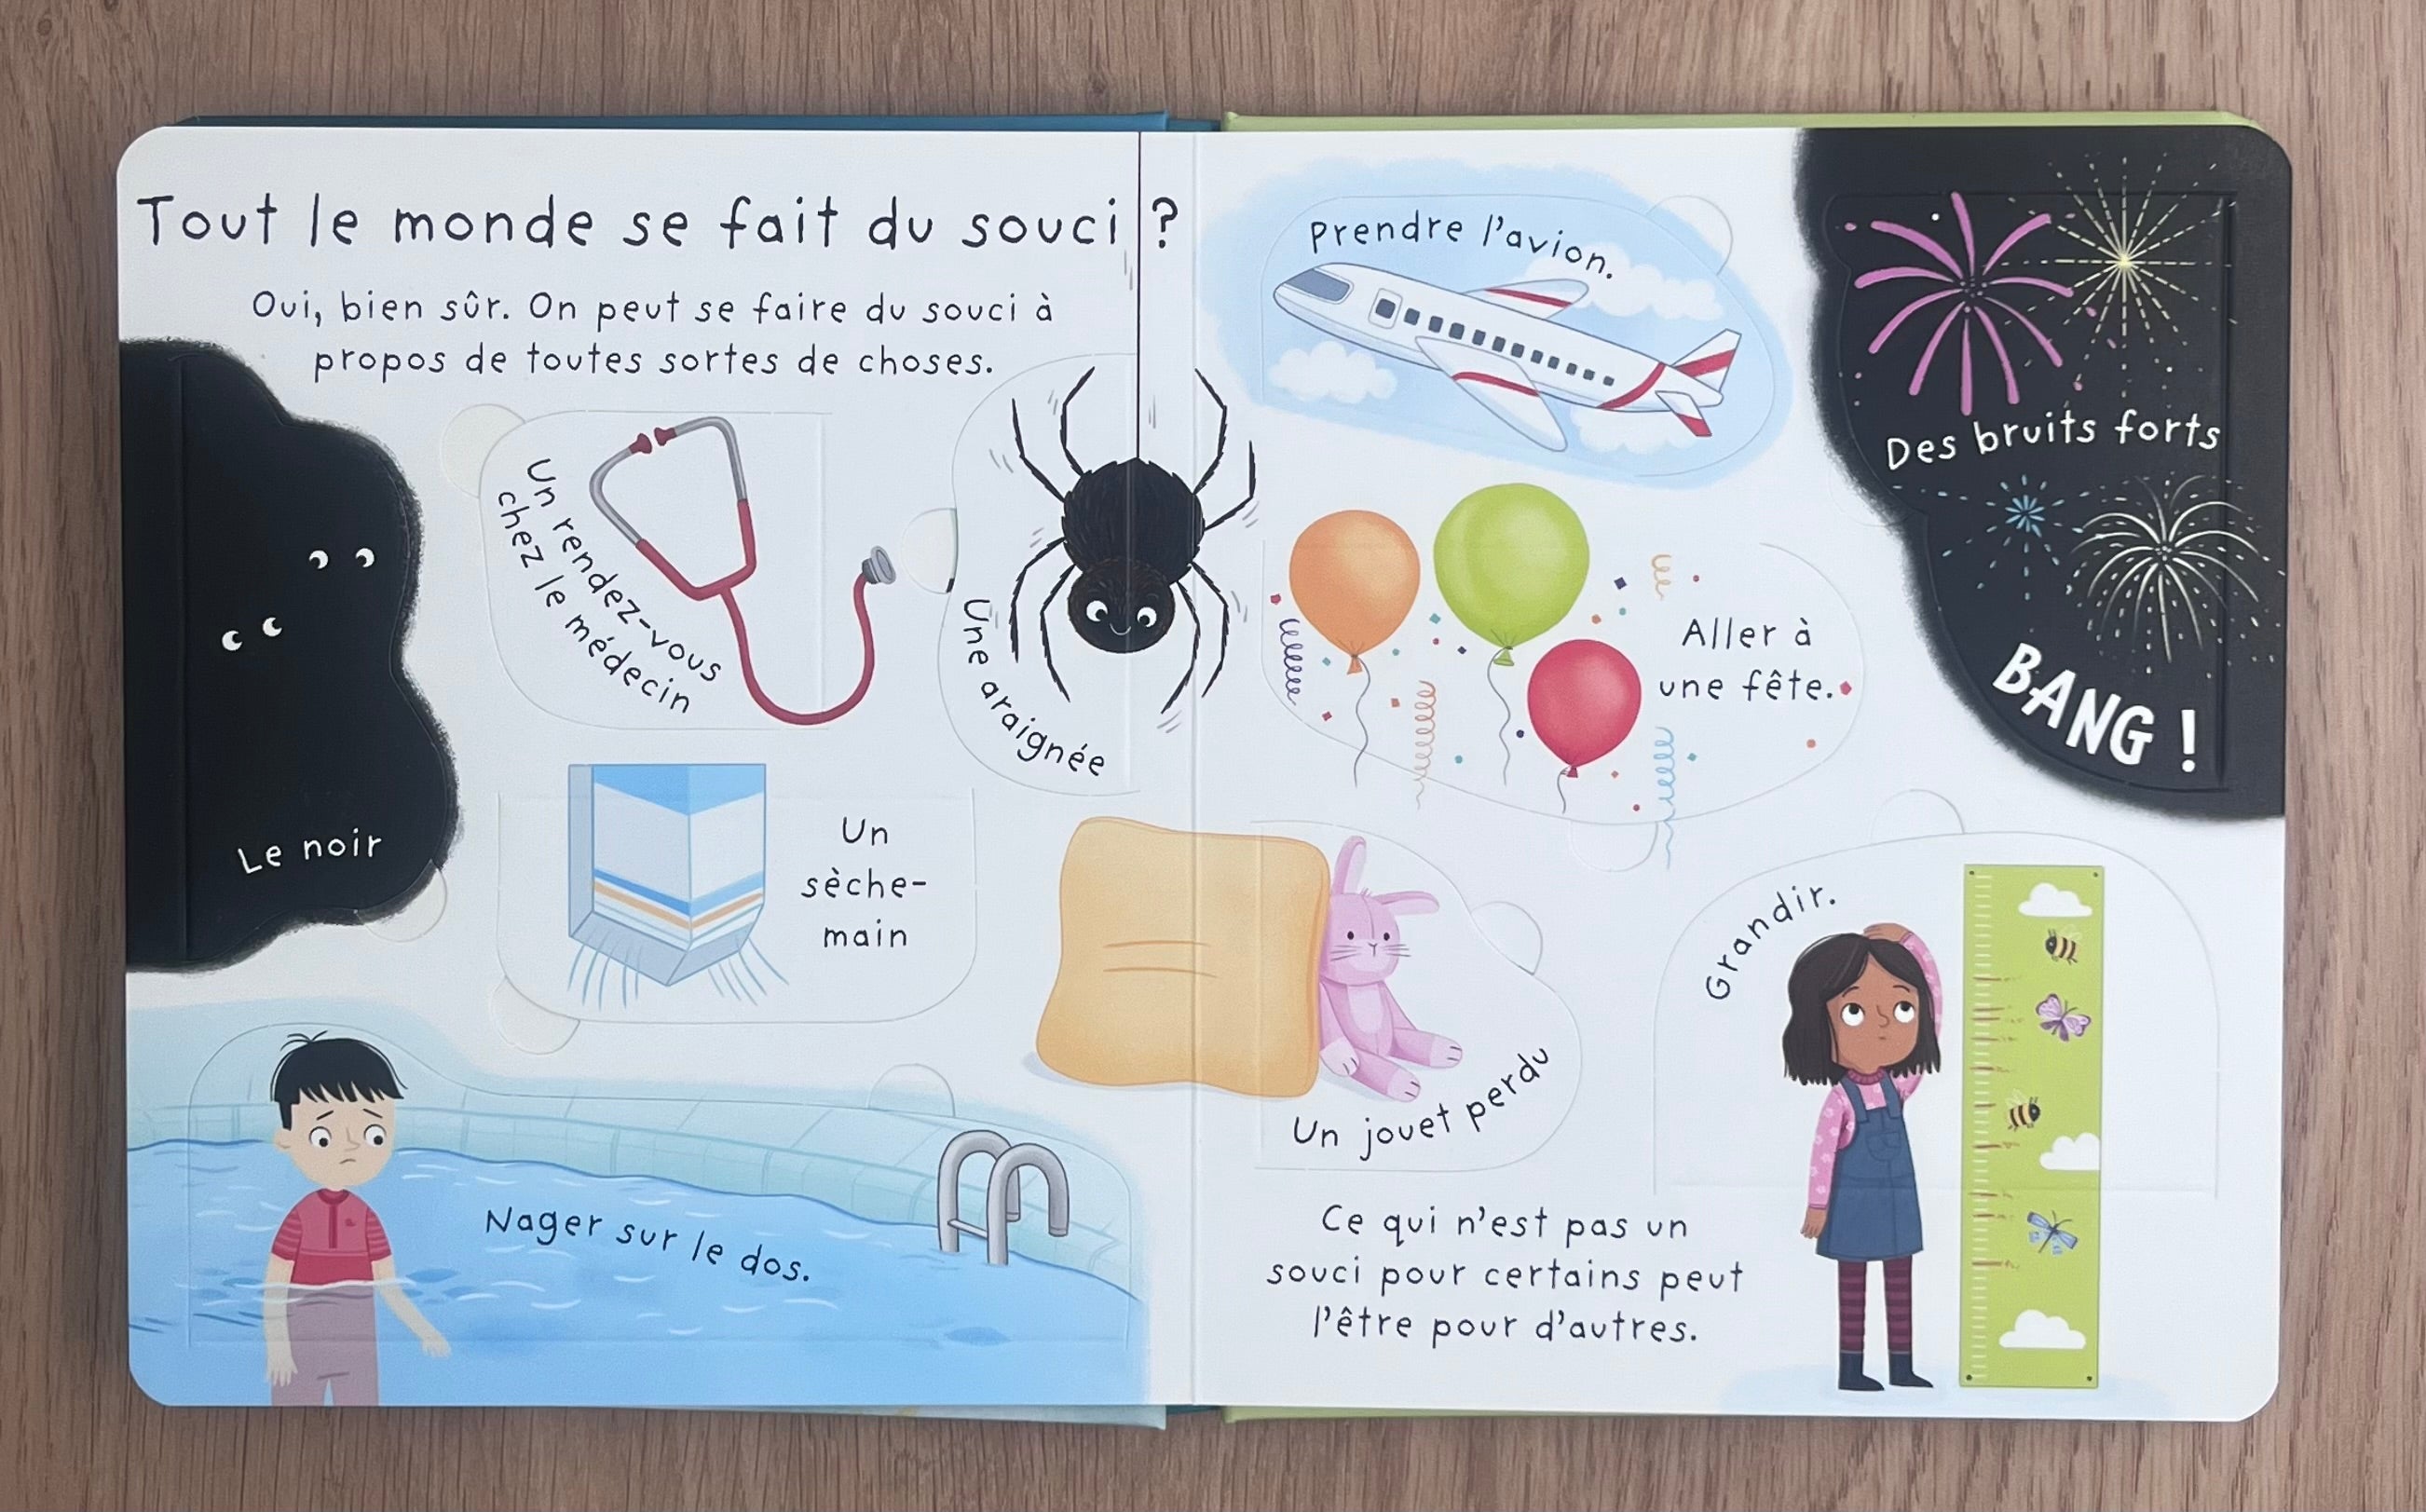 Tout le monde se fait du souci ?
Oui, bien sûr. On peut se faire du souci à
propos de toutes sortes de choses.
Le noir
Un rendez-vous
chez le médecin
Une araignée
Un
sèche-
main
Nager sur le dos.
Prendre l'avion.
Des bruits forts
BANG !
Aller à
une fête.
Un jouet perdu
Grandir.
Ce qui n'est pas un
souci pour certains peut
l'être pour d'autres.